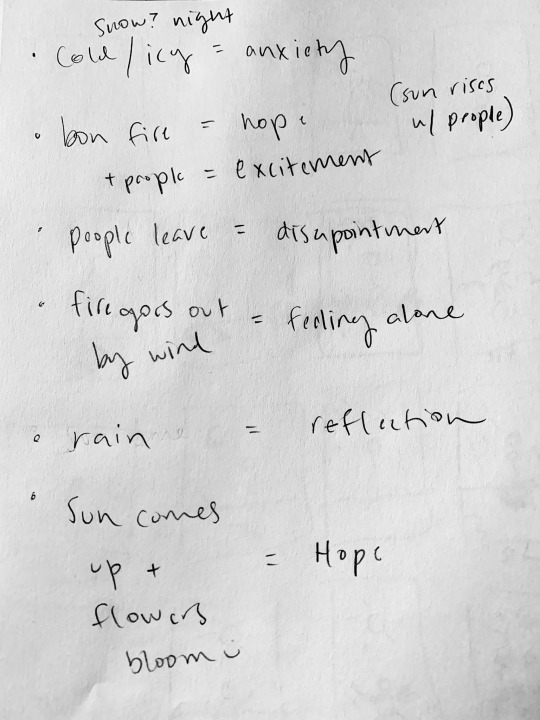 snow? night
• Cold/icy = anxiety
(sun rises
w/ people)
• bon fire = hope
+ people = excitement
• people leave = disapointment
• fire goes out = feeling alone
by wind
• rain = reflection
• Sun comes
up + = Hope
flowers
bloom